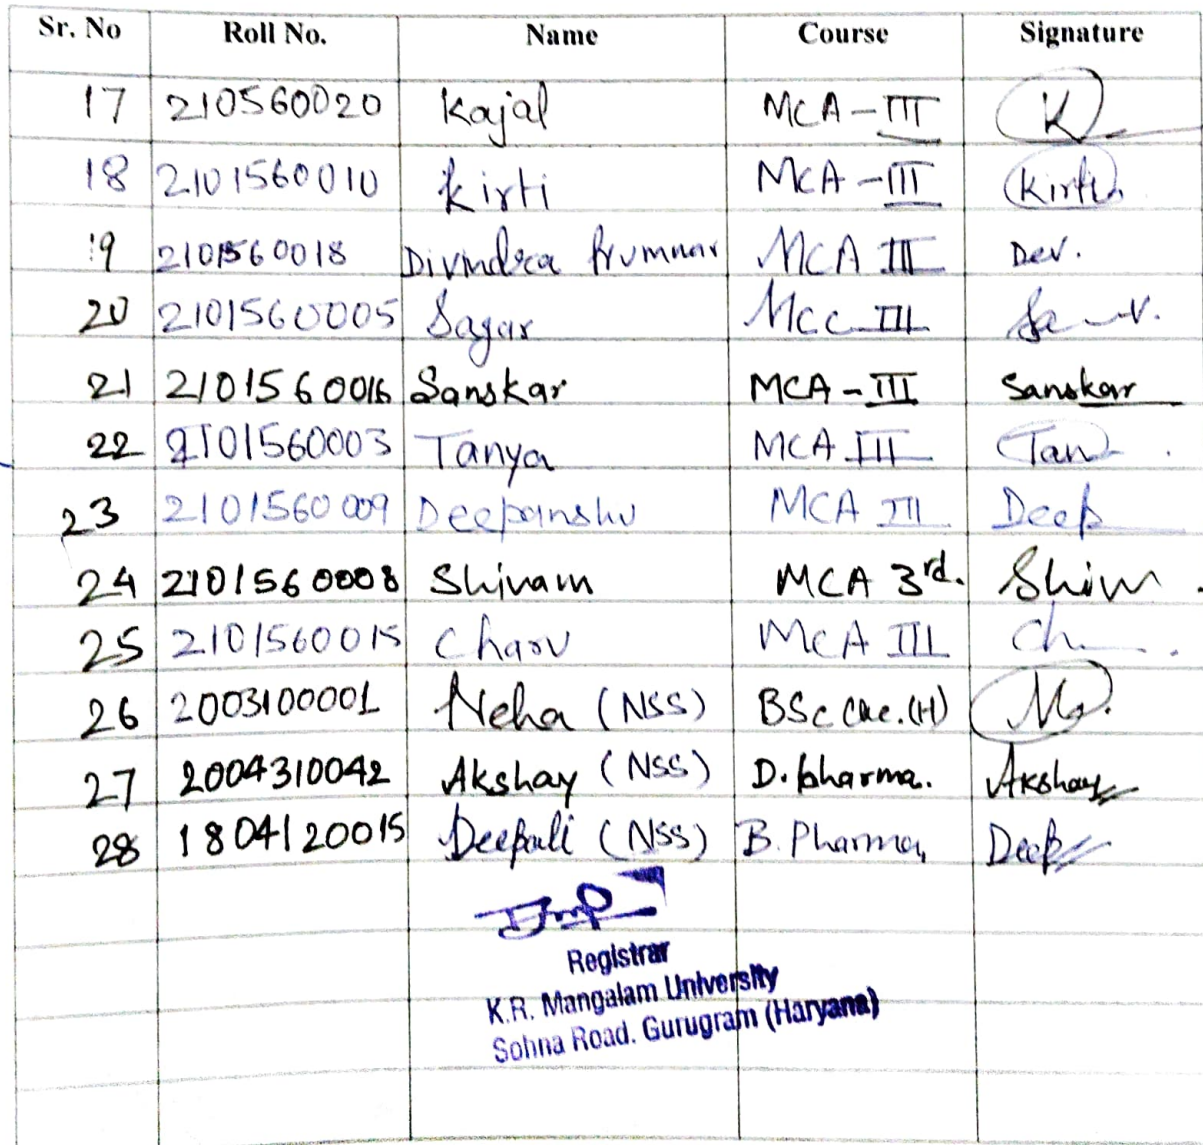 Sr. No Roll No. Name Course Signature
17 210560020 Kajal MCA-III K
18 2101560010 Kirti MCA-III Kirti
19 2101560018 MCA III Dev.
20 2101560005 Sagar MCC III
21 2101560016 Sanskar MCA-III Sanskar
22 2101560003 Tanya MCA III Tan
23 2101560009 Deepanshu MCA III Deep
24 2101560008 Shivam MCA 3rd. Shivm
25 2101560015 Charu MCA III Ch
26 2003100001 Neha (NSS) BSc (H)
27 2004310042 Akshay (NSS) D. pharma. Akshay
28 1804120015 Deepali (NSS) B. Pharma, Deep
Registrar
K.R. Mangalam University
Sohna Road. Gurugram (Haryana)